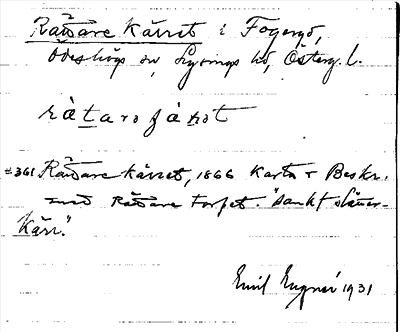 Rättare Kärret i Fogeryd,
Ödeshögs sn, Lysings hd, Österg. l.
rà̀taro ɟárot
≠361 Rättare kärret, 1866 Karta + Beskr.
med Rättare torpet. "Sankt slåtter-
Kärr."
Emil Engner 1931